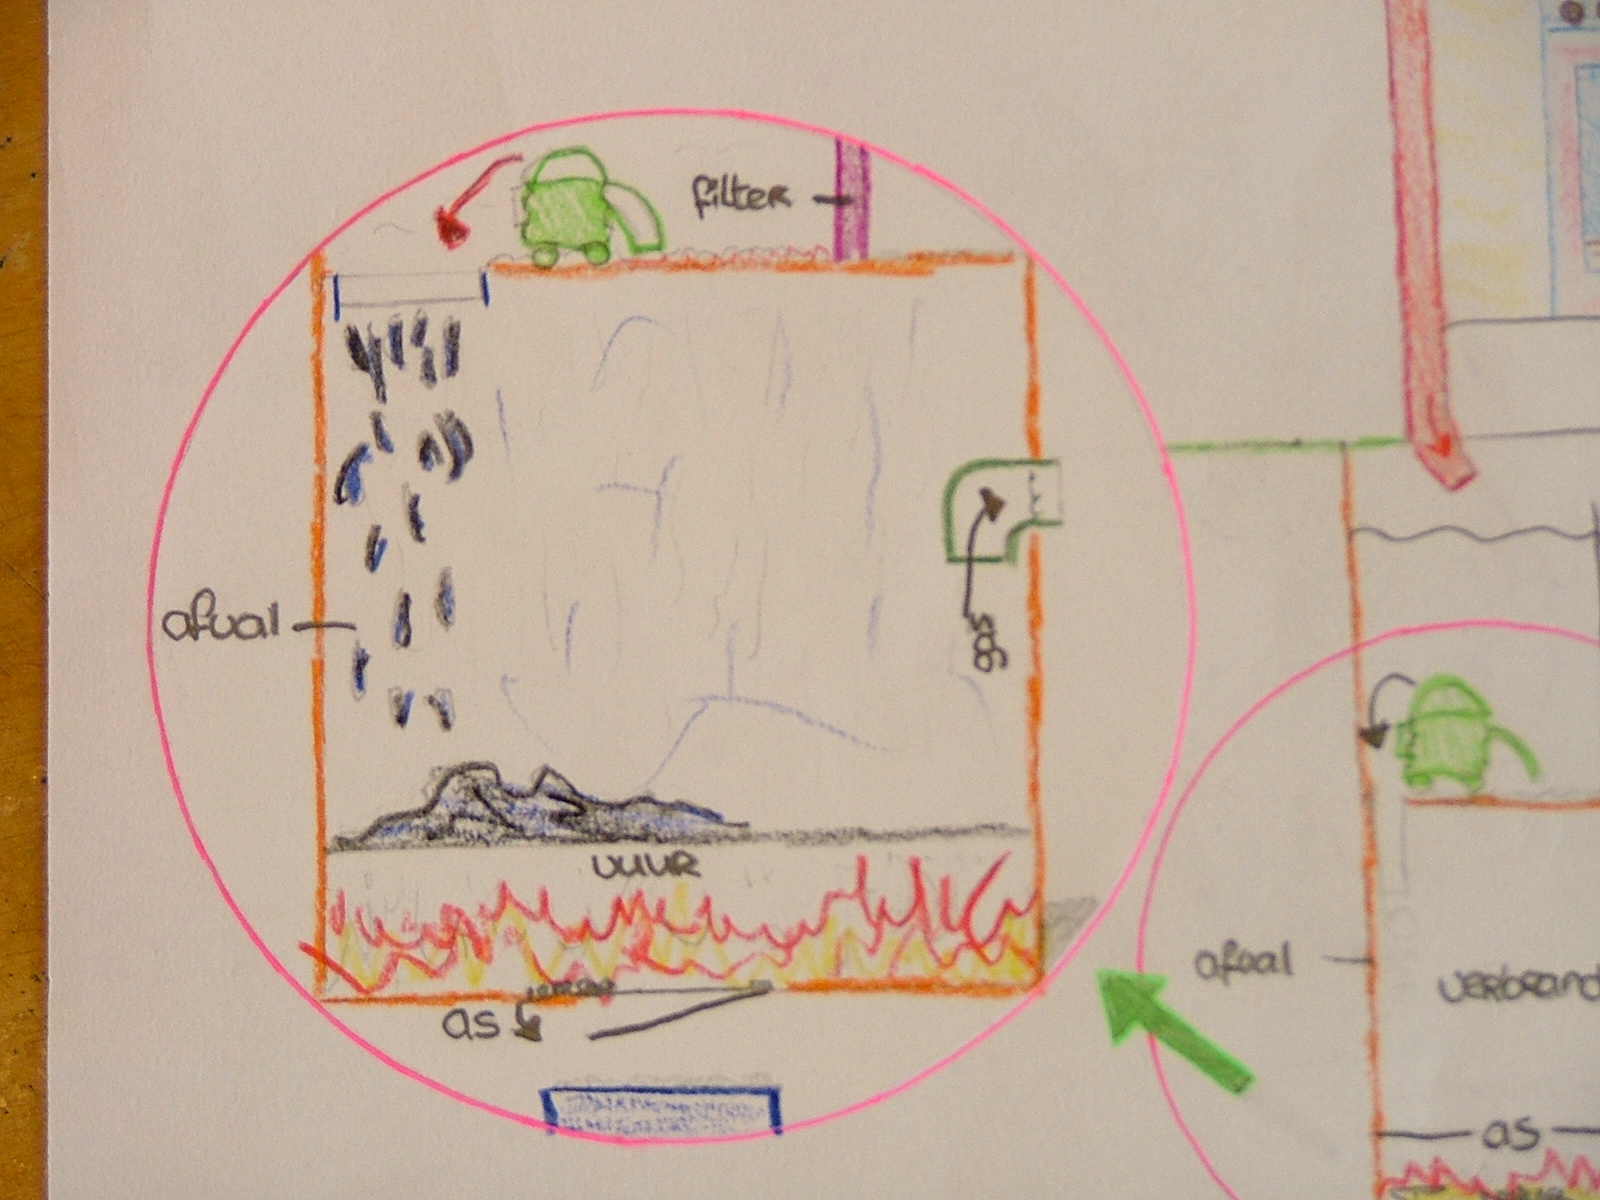 filter
afval
gas
vuur
as
afval
verbrand
as